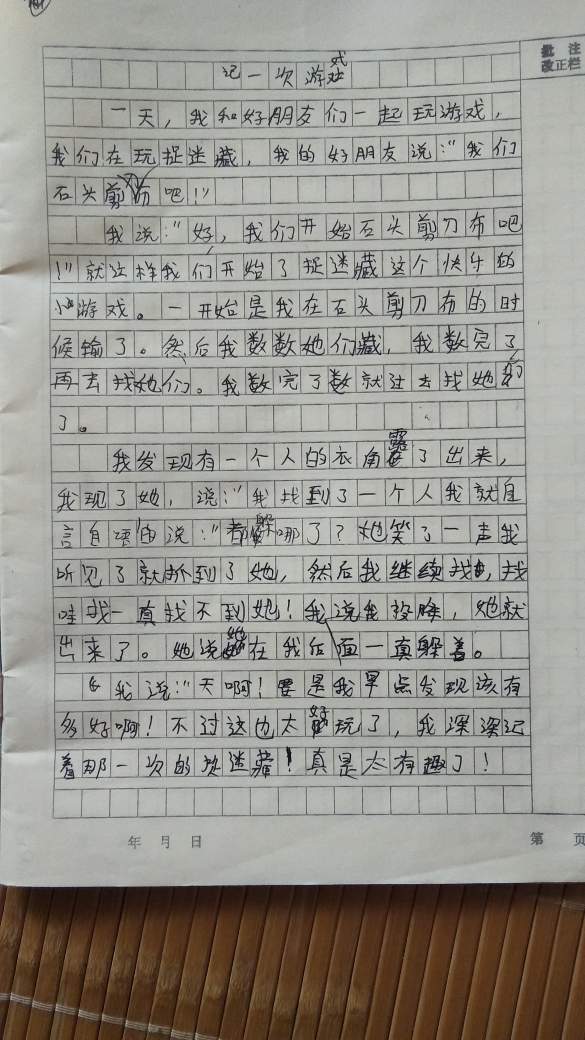 批注
改正栏
记一次游戏
一天，我和好朋友们一起玩游戏，
我们在玩捉迷藏，我的好朋友说："我们
石头剪布吧！"
我说："好，我们开始石头剪刀布吧
！"就这样我们开始了捉迷藏这个快乐的
小游戏。一开始是我在石头剪刀布的时
候输了。然后我数数她们藏，我数完了
再去找她们。我数完了数就过去找她们
了。
我发现有一个人的衣角露了出来，
我现了她，说："我找到了一个人我就自
言自语的说："都躲哪了？她笑了一声我
听见了就抓到了她，然后我继续找，找
哇找一真找不到她！我说我投降，她就
出来了。她说她在我后面一真躲着。
我说："天啊！要是我早点发现该有
多好啊！不过这也太好玩了，我深深记
着那一次的捉迷藏！真是太有趣了！
年 月 日
第 页